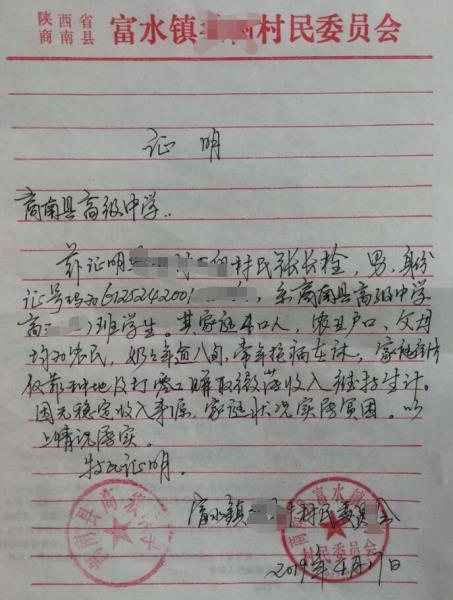 陕西省
商南县
富水镇 村民委员会
证明
商南县高级中学：
兹证明 村民张长栓，男，身份
证号码为6125242001 ，系商南县高级中学
高 班学生。其家庭4口人，农业户口，父母
均为农民，奶奶年逾八旬，常年抱病在床，家庭
仅靠种地及打零工赚取微薄收入维持生计。
因无稳定收入来源，家庭状况实属贫困。以
上情况属实。
特此证明。
富水镇 村村民委员会
2019年4月17日
商南县
富水镇
村民委员会